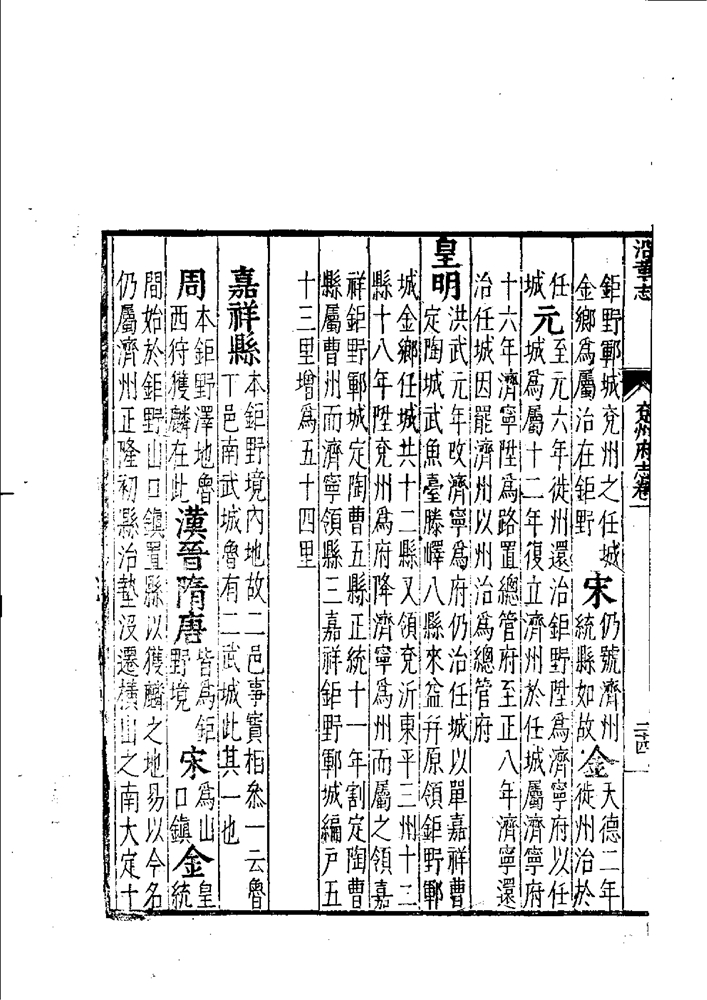 沿革志 兗州府志卷一 二十四
鉅野鄆城兗州之任城
金鄉爲屬治在鉅野
宋
仍號濟州
統縣如故
金
天德二年
徙州治於
任
城
元
至元六年徙州還治鉅野陞爲濟寧府以任
城爲屬十二年復立濟州於任城屬濟寧府
十六年濟寧陞爲路置總管府至正八年濟寧還
治任城因罷濟州以州治爲總管府
皇明
洪武元年改濟寧爲府仍治任城以單嘉祥曹
定陶城武魚臺滕嶧八縣來益并原領鉅野鄆
城金鄉任城共十二縣又領兗沂東平三州十二
縣十八年陞兗州爲府降濟寧爲州而屬之領嘉
祥鉅野鄆城定陶曹五縣正統十一年割定陶曹
縣屬曹州而濟寧領縣三嘉祥鉅野鄆城編戶五
十三里增爲五十四里
嘉祥縣
本鉅野境內地故二邑事實相叅一云魯
下邑南武城魯有二武城此其一也
周
本鉅野澤地魯
西狩獲麟在此
漢晉隋唐
皆爲鉅
野境
宋
爲山
口鎮
金
皇
統
間始於鉅野山口鎮置縣以獲麟之地易以今名
仍屬濟州正隆初縣治墊沒遷橫山之南大定十